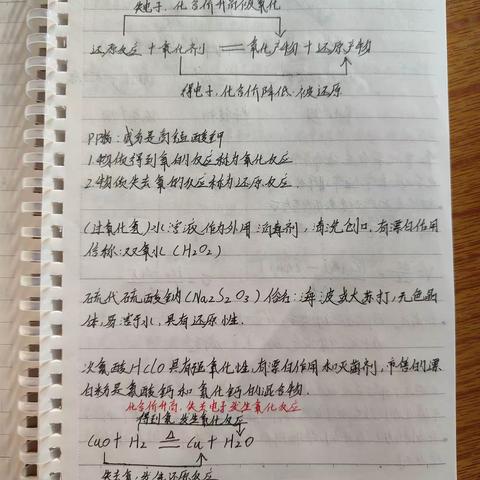 失电子，化合价升高，被氧化
还原反应＋氧化剂 ══ 氧化产物＋还原产物
得电子，化合价降低，被还原
PP粉：成分是高锰酸钾
1.物质得到氧的反应称为氧化反应
2.物质失去氧的反应称为还原反应.
(过氧化氢)水溶液作为外用消毒剂，清洗创口，有漂白作用
俗称：双氧水（H₂O₂）
硫代硫酸钠（Na₂S₂O₃）俗名：海波或大苏打，无色晶
体，易溶于水，具有还原性.
次氯酸HClO具有强氧化性，有漂白作用和灭菌剂，市售的漂
白粉是氯酸钙和氧化钙的混合物.
化合价升高，失去电子发生氧化反应
得到氧，发生氧化反应
CuO＋H₂ ══△ Cu＋H₂O
失去氧，发生还原反应